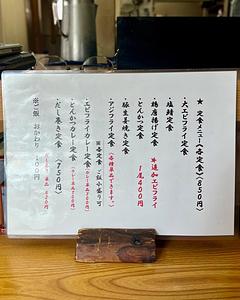 ★ 定食メニュー(各定食)(850円)
・大エビフライ定食
・塩鯖定食
・鶏唐揚げ定食
★追加エビフライ
1尾400円
・とんかつ定食
・豚生姜焼き定食
・アジフライ定食
(各種単品できます。)
※各定食 ご飯小盛り可
・エビフライカレー定食
・とんかつカレー定食
・だし巻き定食 (750円)
※ご飯 おかわり 100円